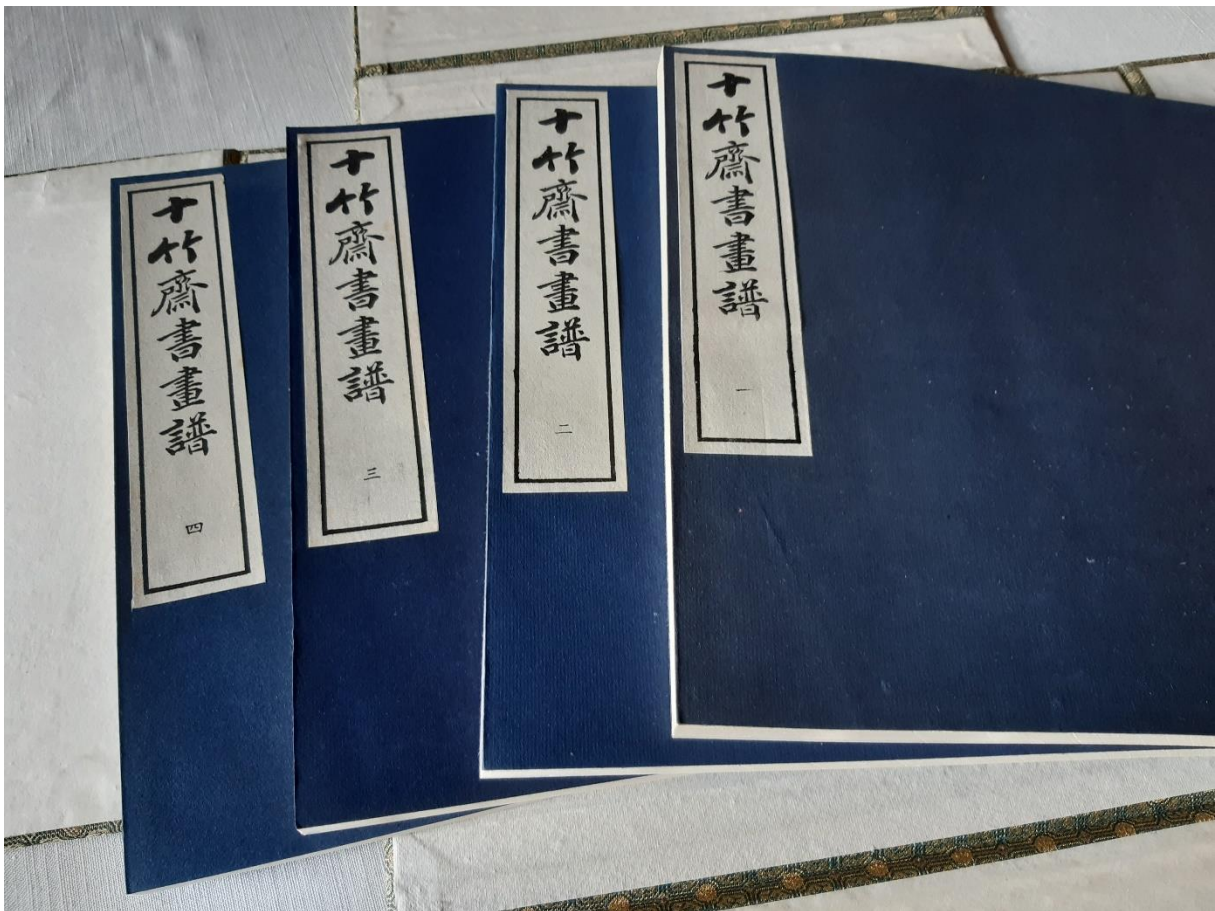 十竹齋書畫譜
一
十竹齋書畫譜
二
十竹齋書畫譜
三
十竹齋書畫譜
四